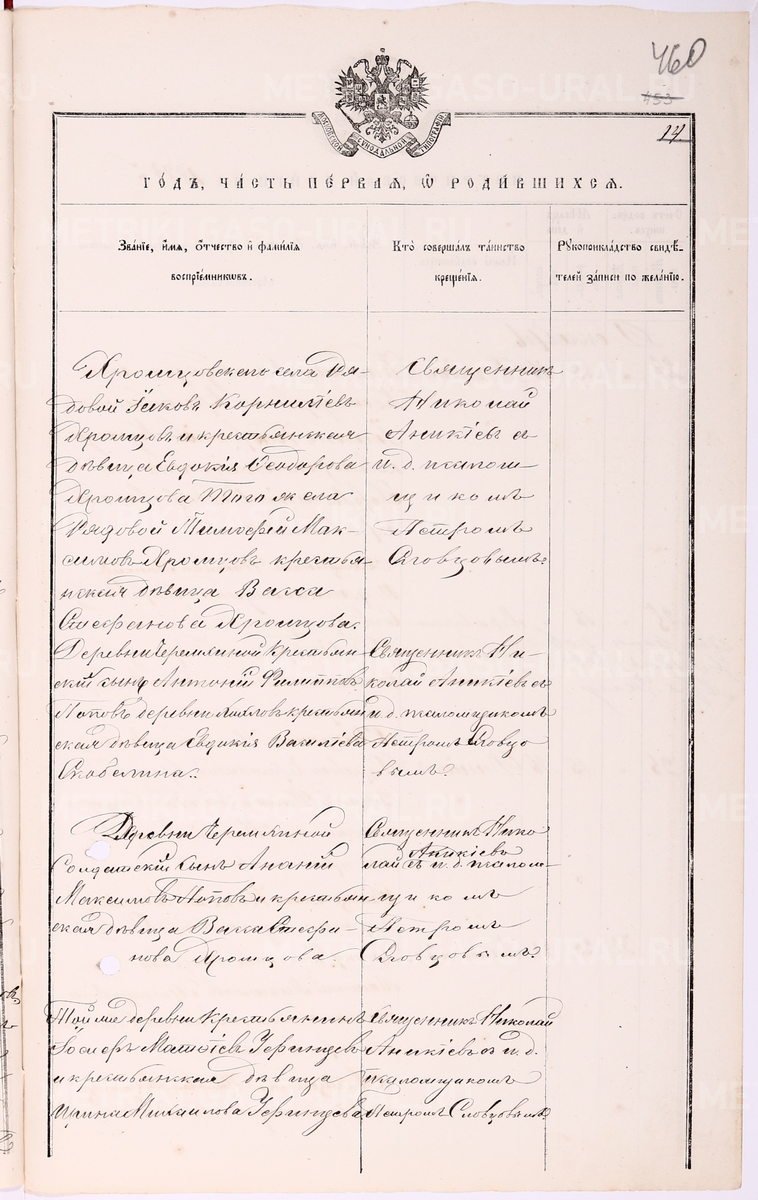 460
453
14
МОСКОВСКОЙ СѴНОДАЛЬНОЙ ТИПОГРАФІИ
ГОДЪ, ЧАСТЬ ПЕРВАЯ, Ѿ РОДИВШИХСЯ.
Званіе, имя, отчество и фамилія
воспріемниковъ.
Кто совершалъ таинство
крещенія.
Рукоприкладство свидѣ-
телей записи по желанію.
Хромцовскаго села Ря-
довой Іаковъ Корниліевъ
Хромцовъ и крестьянская
дѣвица Евдокія Ѳеодорова
Хромцова Того же села
Рядовой Тимоѳей Мак-
симовъ Хромцовъ крестья
нская дѣвица Васса
Стефанова Хромцова.
Священникъ
Николай
Аникіевъ съ
и. д. псалом-
щикомъ
Петромъ
Словцовымъ.
Деревни Черемхиной Крестьян-
скій сынъ Антоній Филиповъ
Поповъ деревни крестьян
ская дѣвица Евдокія Васильева
Скобелина.
Священникъ Ни-
колай Аникіевъ съ
и. д. псаломщикомъ
Петромъ Словцо
вымъ.
Деревни Черемхиной
Солдатскій сынъ Ананій
Максимовъ Поповъ и крестьян
ская дѣвица Васса Стефа-
нова Хромцова
Священникъ Нико
лай Аникіевъ съ и. д. псалом-
щикомъ
Петромъ
Словцовымъ.
Той же деревни Крестьянинъ
Іосифъ Матѳіевъ
и крестьянская дѣвица
Ирина Михаилова
Священникъ Николай
Аникіевъ съ и. д.
псаломщикомъ
Петромъ Словцовымъ.
METRIKI.GASO-URAL.RU